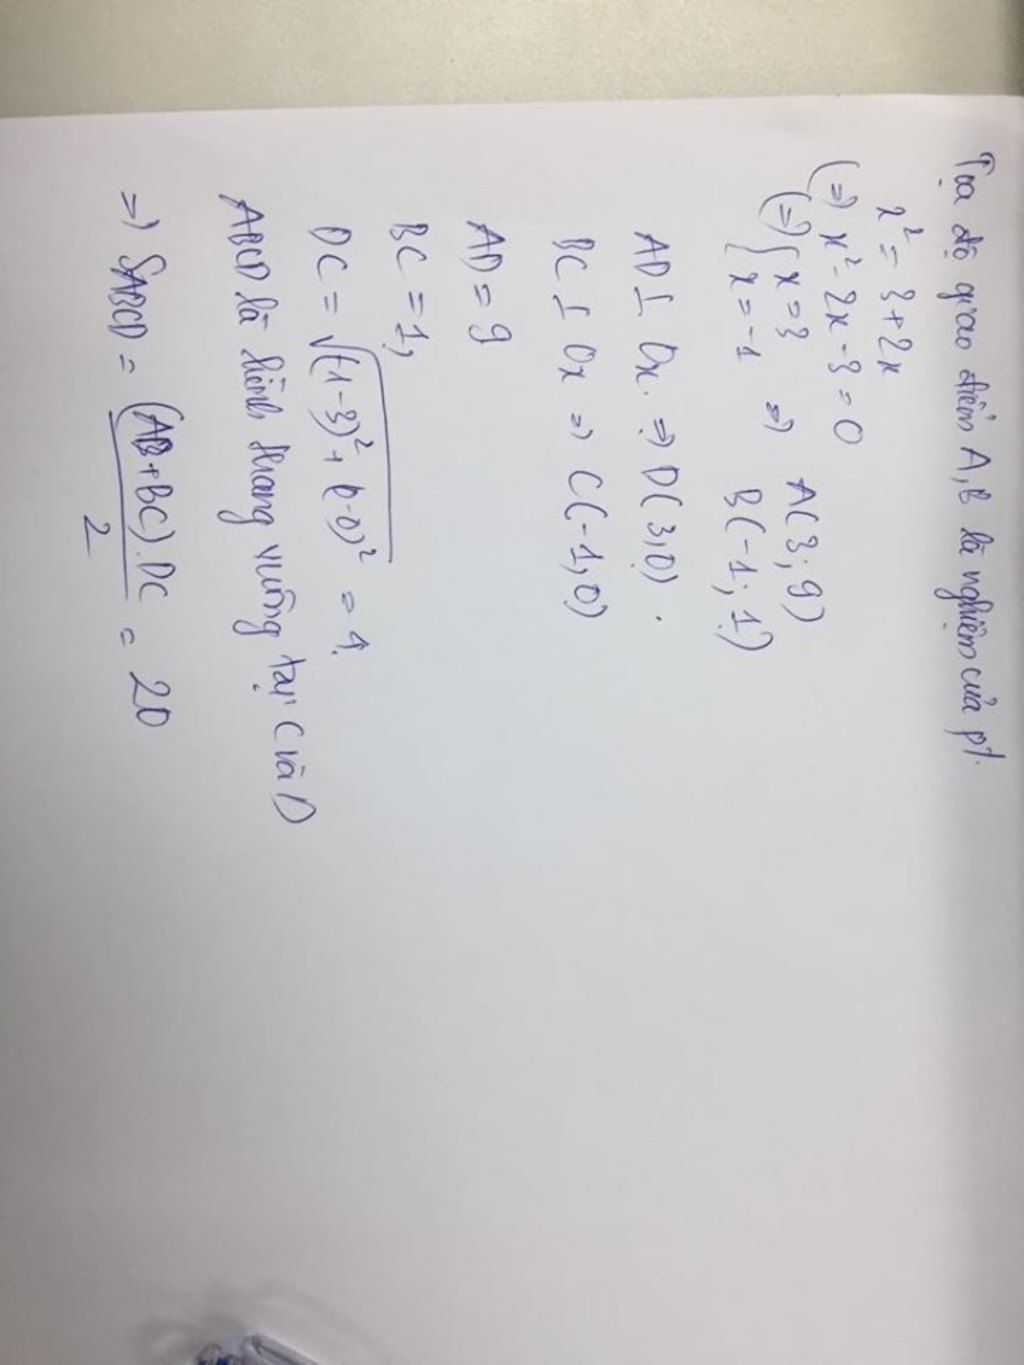 Tọa độ giao điểm A, B là nghiệm của pt.
x² = 3+2x
(=) x² - 2x - 3 = 0
(=) { x = 3 => A(3; 9)
{ x = -1 B(-1; 1)
AD ⊥ Ox. => D(3,0).
BC ⊥ Ox => C(-1,0)
AD = 9
BC = 1,
DC = √(-1-3)² + (0-0)² = 4.
ABCD là hình thang vuông tại C và D
=> SABCD = (AB+BC).DC / 2 = 20